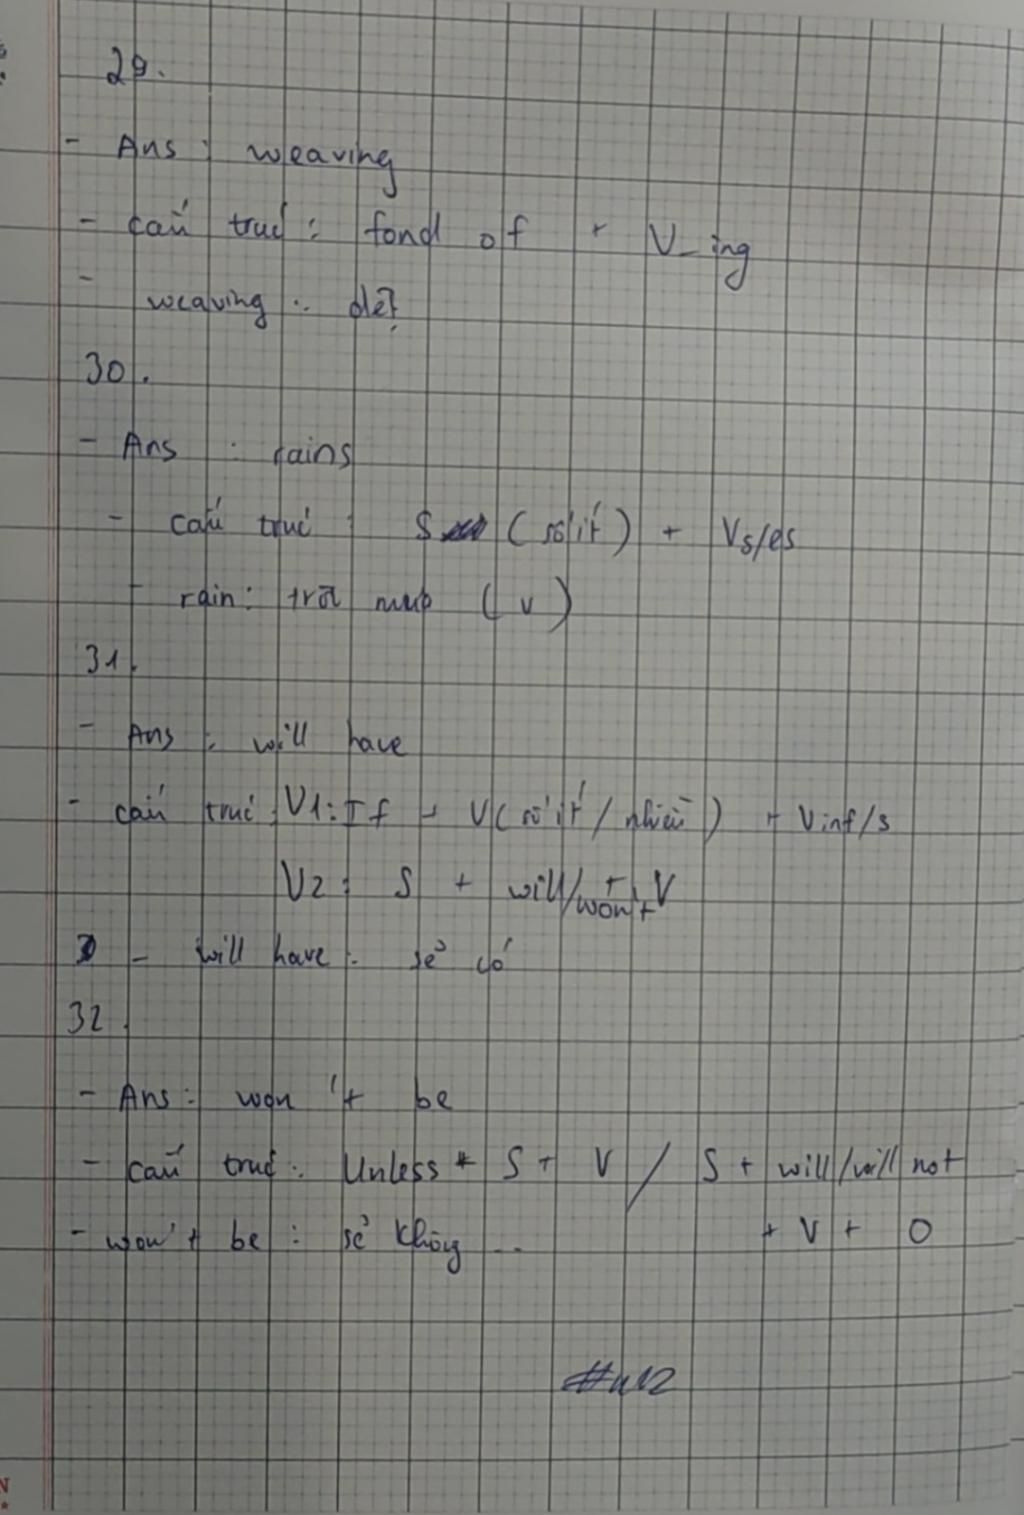 29.
- Ans : weaving
- cấu trúc : fond of + V_ing
- weaving : dệt
30.
- Ans : rains
- cấu trúc : S (số ít) + Vs/es
- rain : trời mưa (v)
31.
- Ans : will have
- cấu trúc : V1: If + V (số ít / nhiều) + Vinf/s
V2 : S + will/won't + V
- will have : sẽ có
32.
- Ans : won't be
- cấu trúc : Unless + S + V / S + will/will not
+ V + O
- won't be : sẽ không ...